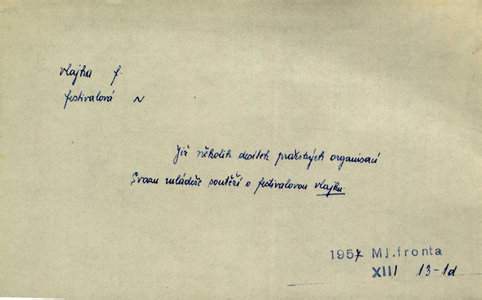 vlajka f.
festivalová N
Již několik desítek pražských organisací
Svazu mládeže soutěží o festivalovou vlajku.
1957 Ml.fronta
XIII 13-1d